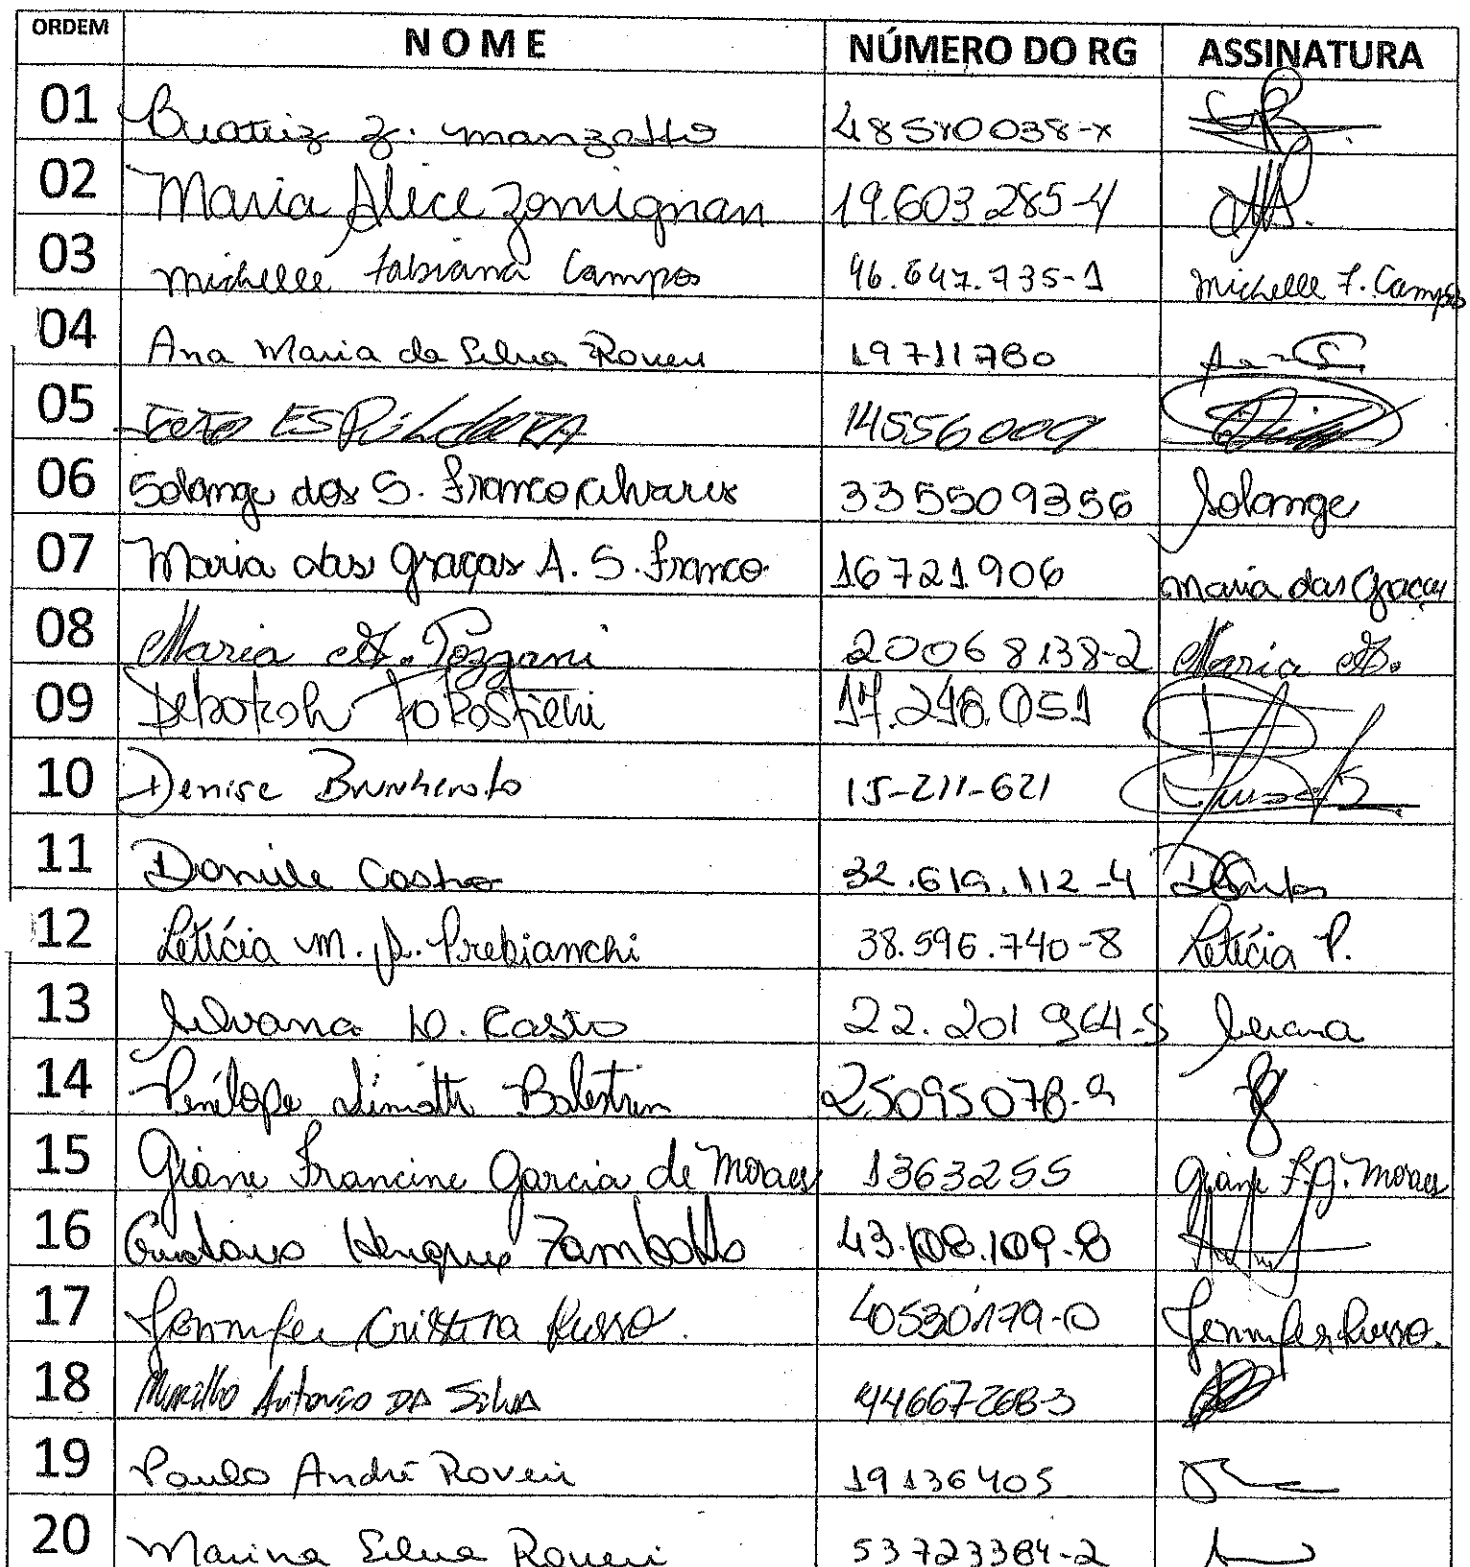 ORDEM NOME NÚMERO DO RG ASSINATURA
01 Beatriz Z. Manzatto 48570038-x
02 Maria Alice Zomignan 19.603.285-4
03 Michelle Fabiana Campos 46.647.735-1 Michelle F. Campos
04 Ana Maria da Silva Roveri 19711780
05 14556009
06 Solange dos S. Franco Alvares 335509356 Solange
07 Maria das Graças A. S. Franco 16721906 Maria das Graças
08 Maria Ap. Pozzani 20068138-2 Maria Ap.
09 17.248.051
10 Denise Brunheroto 15-211-621
11 Daniele Castro 32.619.112-4
12 Letícia M. P. Prebianchi 38.596.740-8 Letícia P.
13 Silvana D. Castro 22.201964-5
14 Penélope Balestrin 25095078-9
15 Giane Francine Garcia de Moraes 1363255 Giane F.G. Moraes
16 Gustavo Henrique Zambotto 43.108.109-8
17 Jennifer Cristina Russo. 40530179-0 Jennifer Russo.
18 Murillo Antonio DA Silva 44667268-3
19 Paulo André Roveri 19136405
20 Marina Silva Roveri 53723384-2